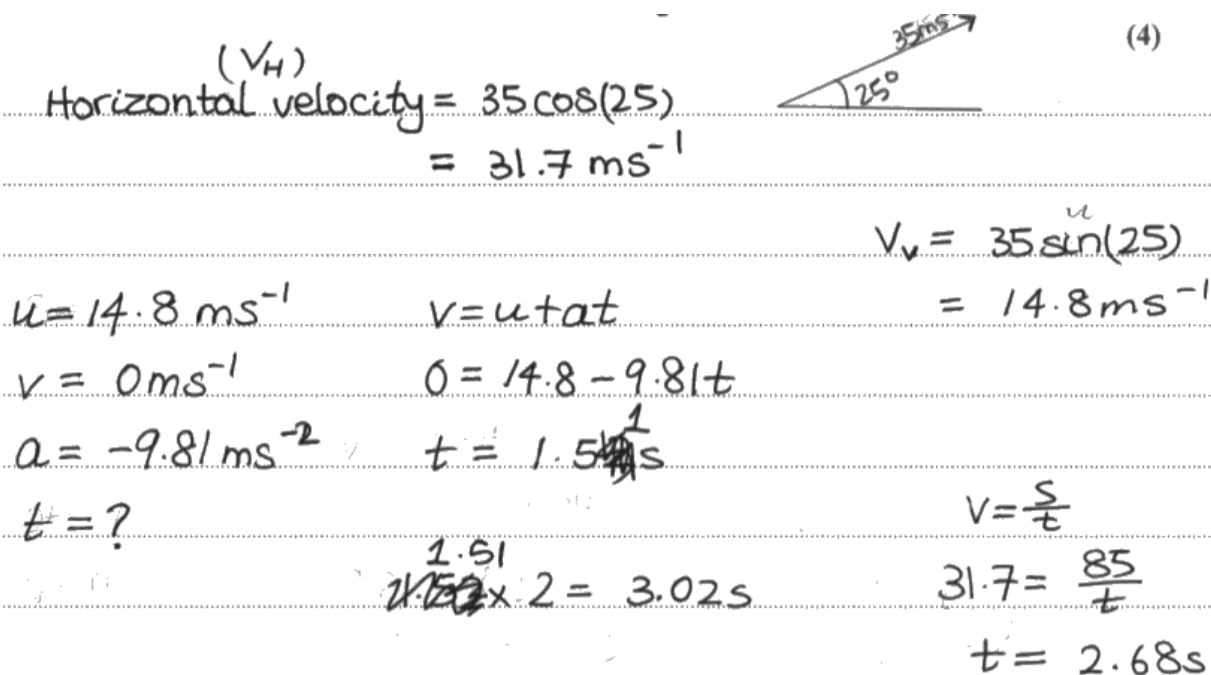 35ms⁻¹
(4)
25°
(V_H)
Horizontal velocity = 35 cos(25)
= 31.7 ms⁻¹
u
V_v = 35 sin(25)
= 14.8 ms⁻¹
u = 14.8 ms⁻¹
v = 0 ms⁻¹
a = -9.81 ms⁻²
t = ?
v = u + at
0 = 14.8 - 9.81t
t = 1.51 s
1.51 x 2 = 3.02 s
V = s/t
31.7 = 85/t
t = 2.68 s